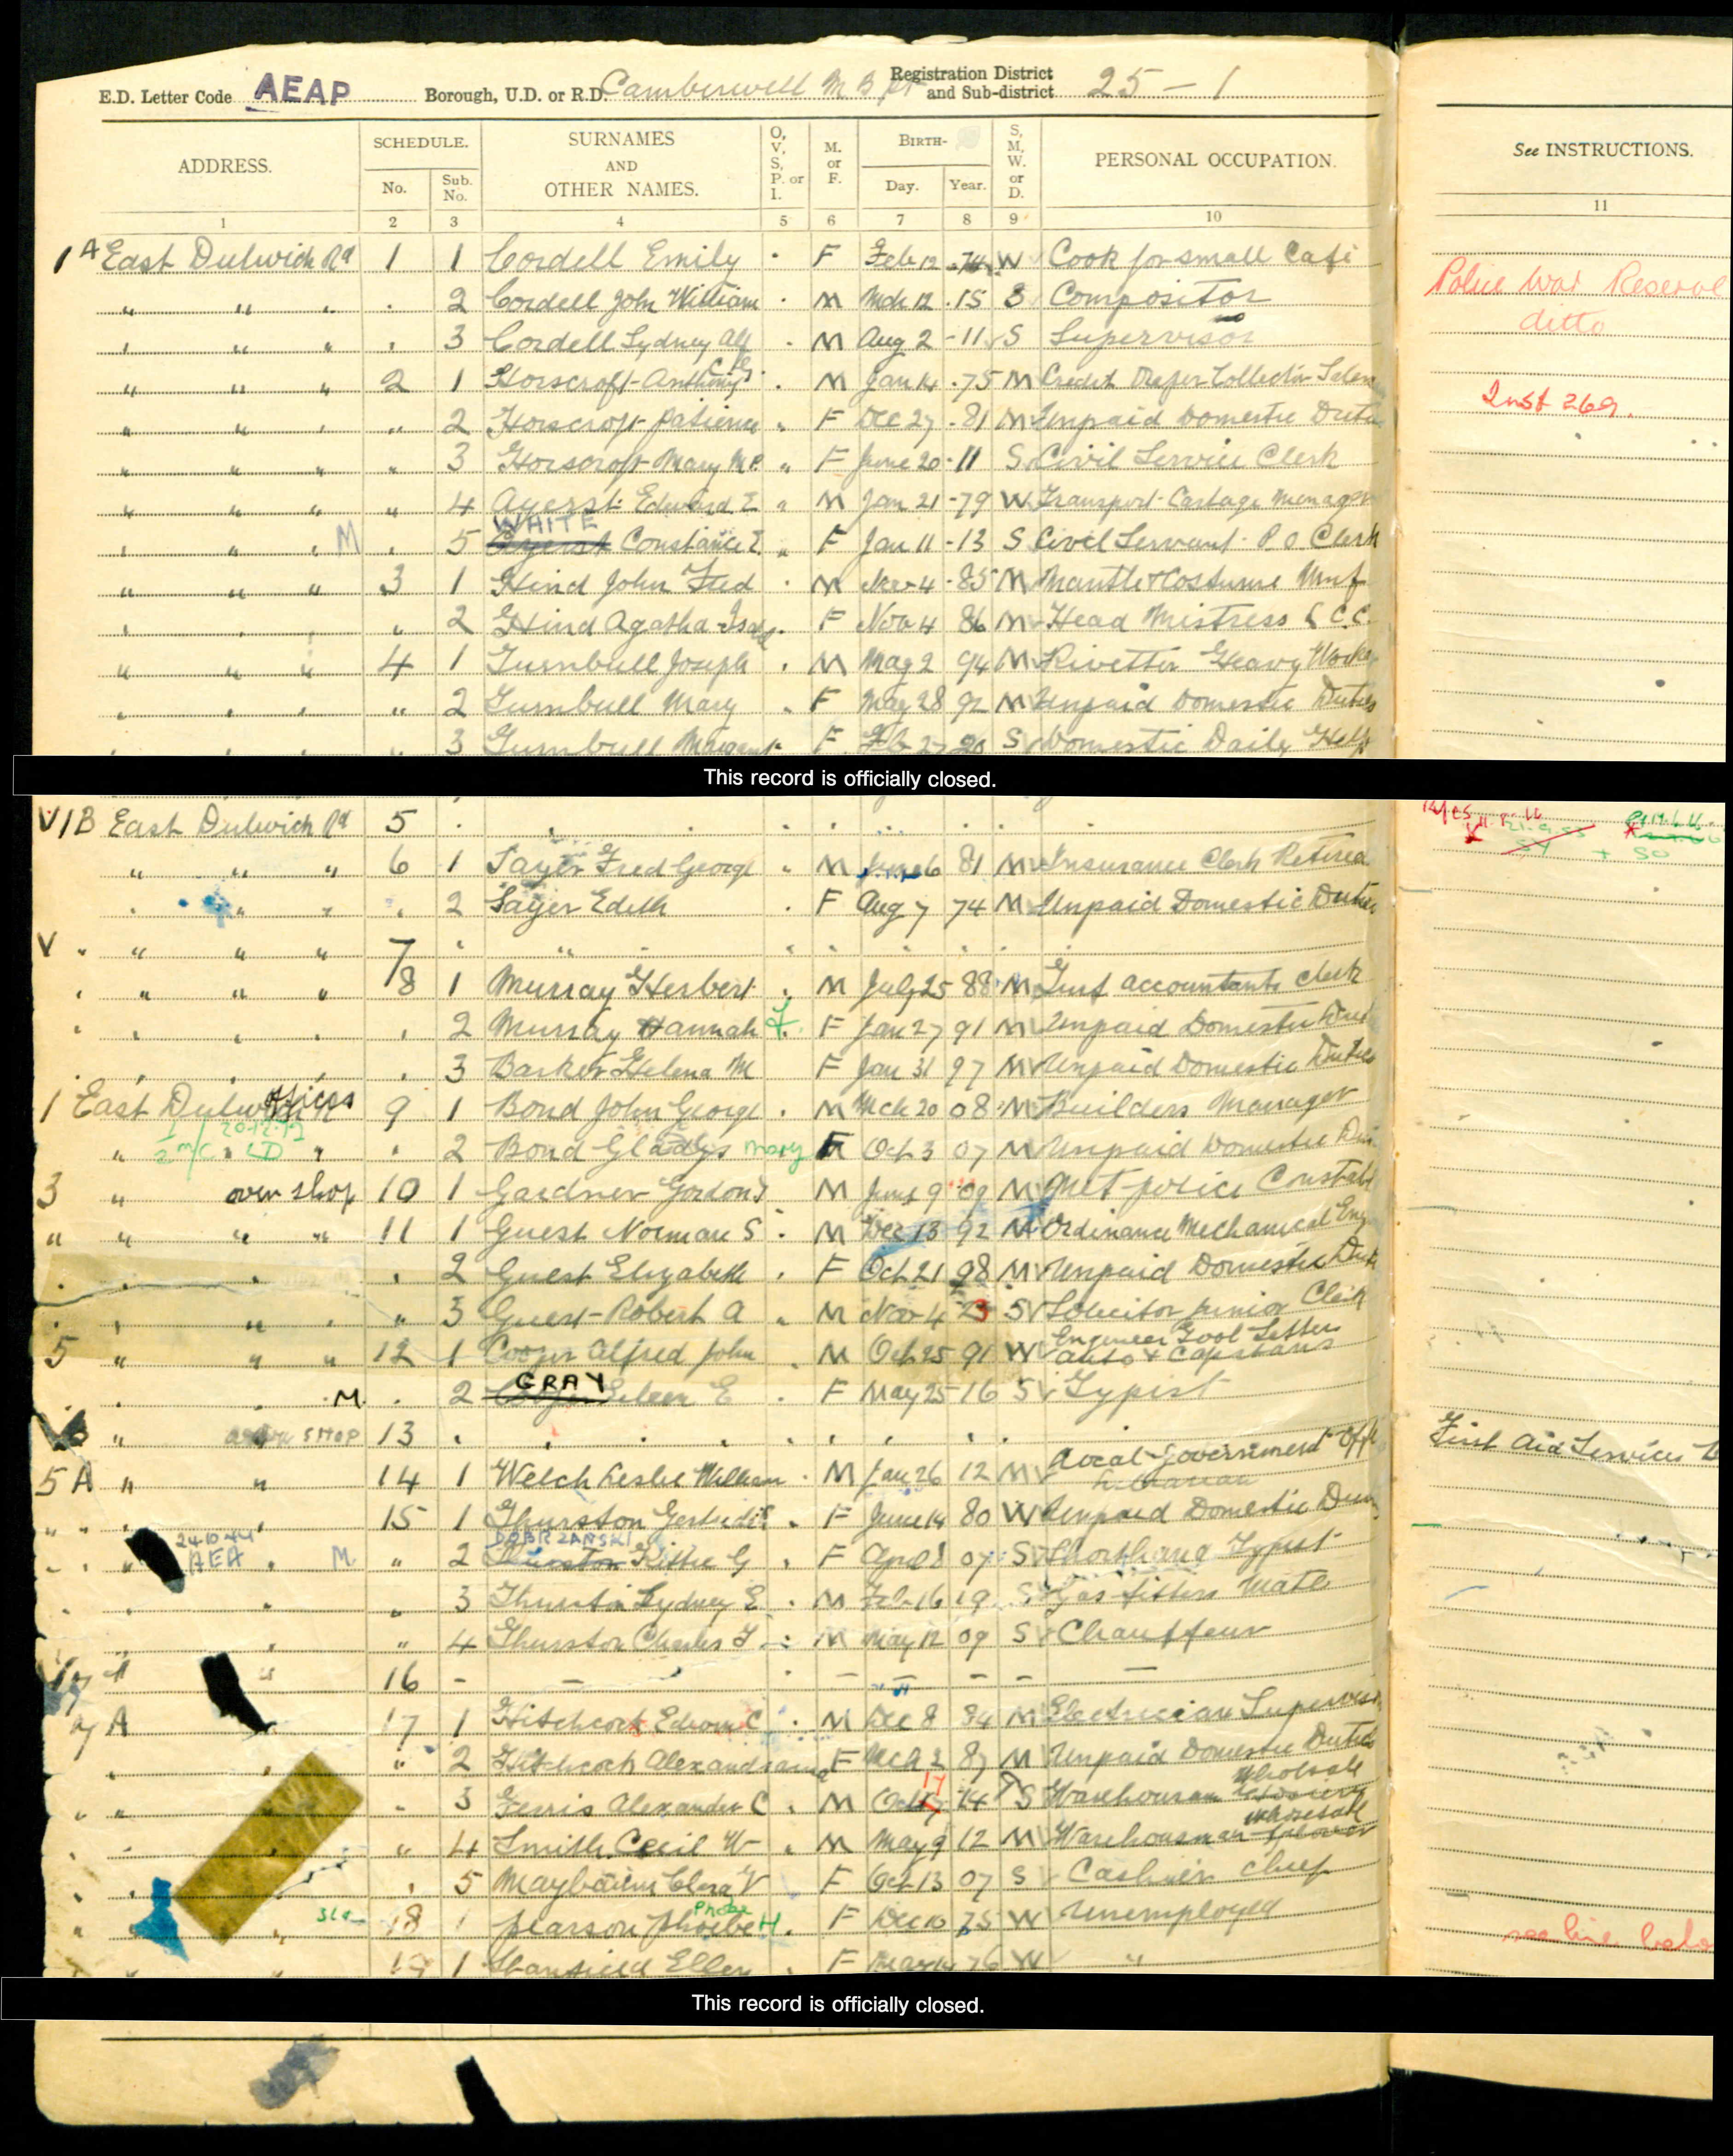 E.D. Letter Code AEAP Borough, U.D. or R.D. Camberwell M B Registration District and Sub-district 25 – 1
ADDRESS. SCHEDULE. No. Sub. No. SURNAMES AND OTHER NAMES. O, V, S, P. or I. M. or F. BIRTH- Day. Year. S, M, W. or D. PERSONAL OCCUPATION. See INSTRUCTIONS.
1 2 3 4 5 6 7 8 9 10 11
1A East Dulwich Rd 1 1 Cordell Emily F Feb 12 74 W Cook for small Cafe
" " " 2 Cordell John William M Mch 12 15 S Compositor Police War Reserve
" " " 3 Cordell Sydney Alf M Aug 2 11 S Supervisor ditto
" " " 2 1 Horscroft Anthony M Jan 14 75 M Credit Draper Collector
" " " " 2 Horscroft Patience F Dec 27 81 M Unpaid Domestic Inst 269.
" " " " 3 Horscroft Mary M P. F June 20 11 S Civil Service Clerk
" " " " 4 Ayerst Edward E M Jan 21 79 W Transport Cartage Manager
" " " M " 5 WHITE Ayerst Constance E F Jan 11 13 S Civil Servant P O Clerk
" " " 3 1 Hind John Fred M Nov 4 85 M Mantle & Costume Mnf
" " " " 2 Hind Agatha F Nov 4 86 M Head Mistress L C.C.
" " " 4 1 Turnbull Joseph M May 2 94 M Rivetter Heavy Worker
" " " " 2 Turnbull Mary F May 28 92 M Unpaid Domestic Duties
" " " " 3 Turnbull Margaret F Feb 27 20 S Domestic Daily Help
This record is officially closed.
V 1B East Dulwich Rd 5
" " " 6 1 Sayer Fred George M June 6 81 M Insurance Clerk Retired
" " " 2 Sayer Edith F Aug 7 74 M Unpaid Domestic Duties
V " " " 7
" " " 8 1 Murray Herbert M July 25 88 M accountants clerk
" " " 2 Murray Hannah F Jan 27 91 M Unpaid Domestic
" " " 3 Barker Helena M F Jan 31 97 M Unpaid Domestic Duties
1 East Dulwich offices 9 1 Bond John George M Mch 20 08 M Builders Manager
" " " 2 Bond Gladys Mary F Oct 3 07 M Unpaid Domestic
3 " over shop 10 1 Gardner Gordon M June 9 09 M Met police Constable
" " " " 11 1 Guest Norman S M Dec 13 92 M Ordinance Mechanical Eng
" " " 2 Guest Elizabeth F Oct 21 98 M Unpaid Domestic
" " " 3 Guest Robert A M Nov 4 23 S Solicitor junior Clerk
5 " " " 12 1 Cooper Alfred John M Oct 25 91 W Engineer Tool Setter auto & Capstans
M. 2 GRAY Eileen E F May 25 16 S Typist
" SHOP 13
5A " " 14 1 Welch Leslie William M Jan 26 12 M Local Government Librarian First Aid Services
" " " 15 1 Thurston Gertrude F June 14 80 W Unpaid Domestic
24.10.44 AEA M " 2 DOBRZANSKI Thurston Kittie G F April 8 07 S Shorthand Typist
" 3 Thurston Sydney E M Feb 16 19 S Gas fitters mate
" 4 Thurston Charles M May 12 09 S Chauffeur
" 16 – – – – – –
7A " 17 1 Hitchcock Edwin C M Dec 8 84 M Electrician Supervisor
" 2 Hitchcock Alexandra F Mch 2 87 M Unpaid Domestic Duties
" 3 Ferris Alexander C M Oct 17 14 S Warehouseman Wholesale
" 4 Smith Cecil W M May 9 12 M Warehouseman wholesale
" 5 Clara V F Oct 13 07 S Cashier
" 18 1 Pearson Phoebe H. Phoebe F Dec 10 75 W Unemployed see line
19 1 Ellen F 76 W "
This record is officially closed.